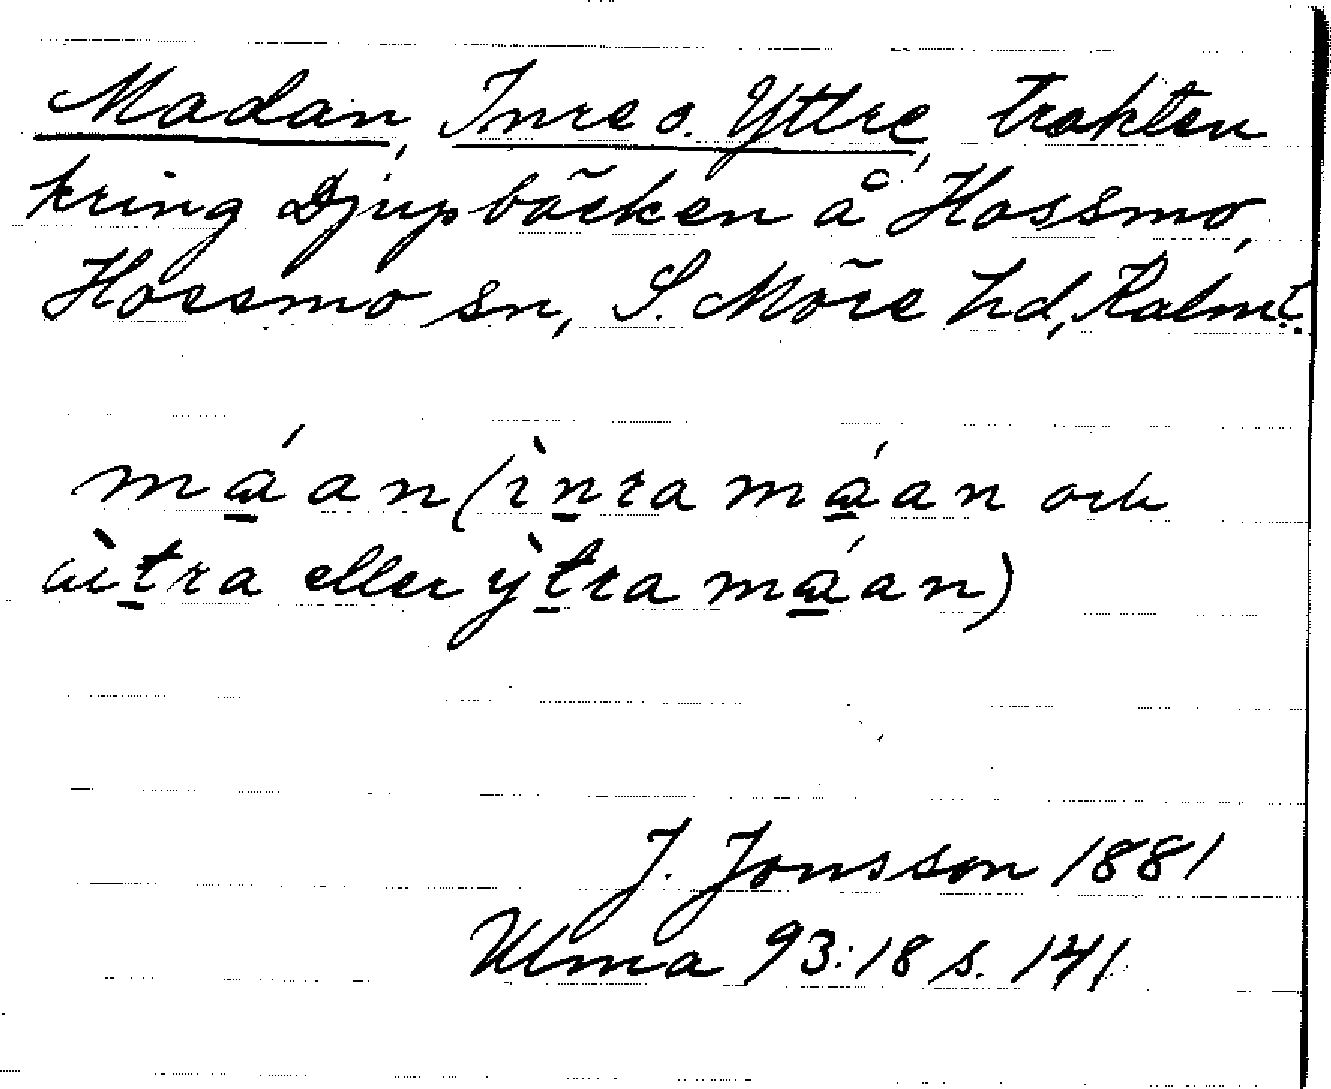 Madan, Inre o. Yttre, trakten
kring Djupbäcken å Hossmo,
Hossmo sn, S. Möre hd, Kalm. l.
má̱an (ìṉra má̱an och
ùṯra eller ỳṯra má̱an)
J. Jonsson 1881
Ulma 93:18 s. 141